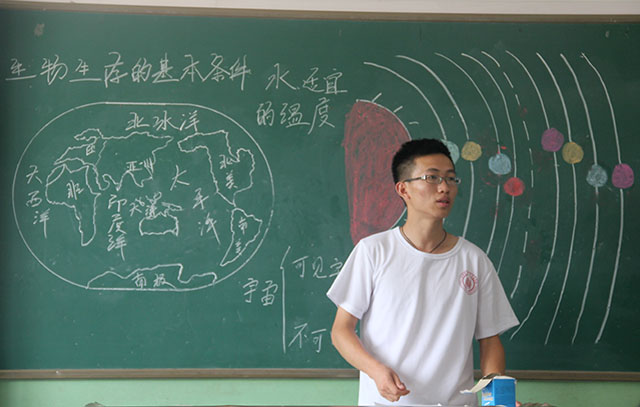 生物生存的基本条件 水、适宜
的温度
北冰洋
大西洋
欧
亚洲
非
印度洋
大洋
太平洋
北美
南美
南极
宇宙
可见宇
不可